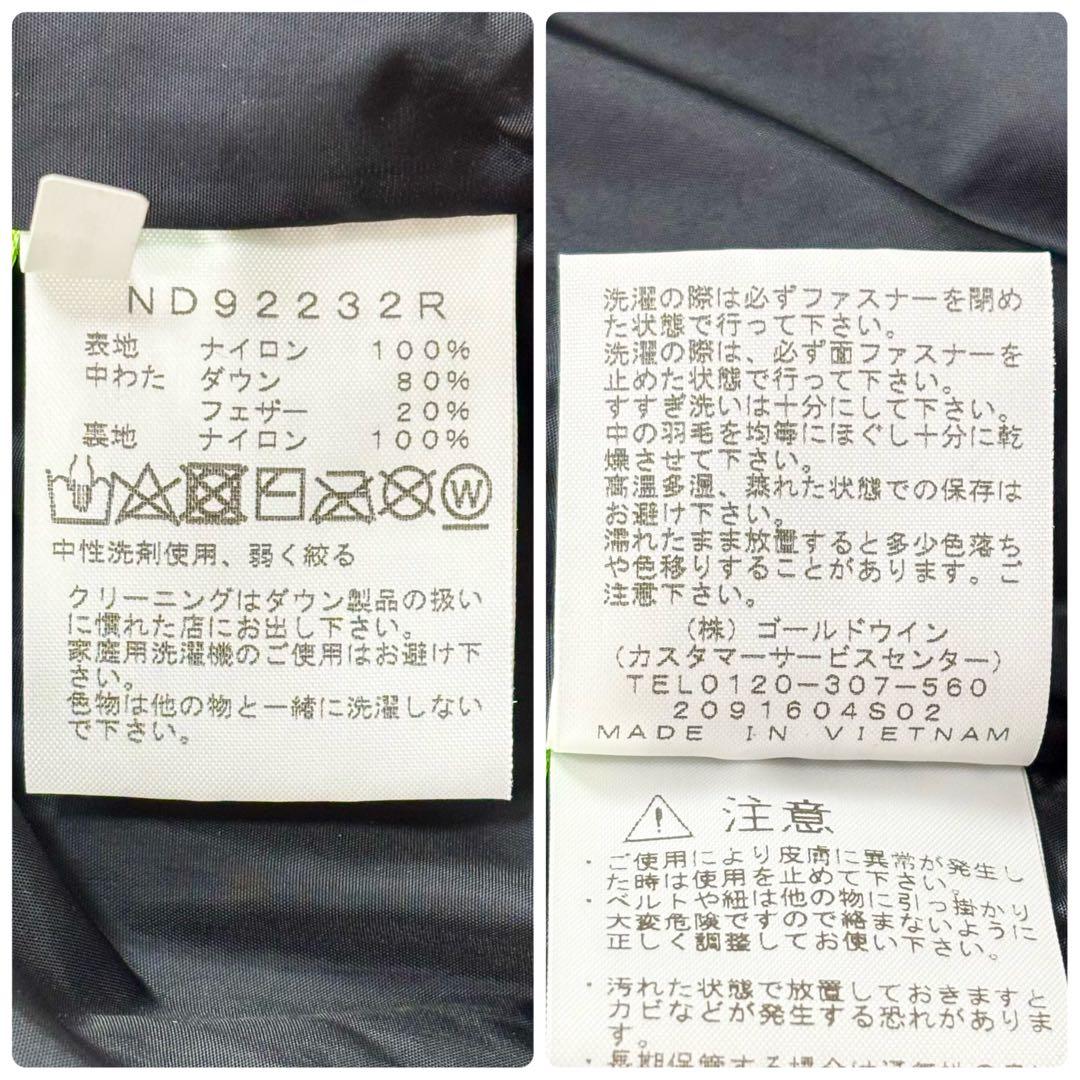 ND92232R
表地 ナイロン 100%
中わた ダウン 80%
フェザー 20%
裏地 ナイロン 100%
W
中性洗剤使用、弱く絞る
クリーニングはダウン製品の扱い
に慣れた店にお出し下さい。
家庭用洗濯機のご使用はお避け下
さい。
色物は他の物と一緒に洗濯しない
で下さい。
洗濯の際は必ずファスナーを閉め
た状態で行って下さい。
洗濯の際は、必ず面ファスナーを
止めた状態で行って下さい。
すすぎ洗いは十分にして下さい。
中の羽毛を均等にほぐし十分に乾
燥させて下さい。
高温多湿、蒸れた状態での保存は
お避け下さい。
濡れたまま放置すると多少色落ち
や色移りすることがあります。ご
注意下さい。
(株)ゴールドウイン
(カスタマーサービスセンター)
TEL0120-307-560
2091604S02
MADE IN VIETNAM
注意
・ご使用により皮膚に異常が発生し
た時は使用を止めて下さい。
・ベルトや紐は他の物に引っ掛かり
大変危険ですので絡まないように
正しく調整してお使い下さい。
・汚れた状態で放置しておきますと
カビなどが発生する恐れがありま
す。
・長期保管する場合は通気性の良い